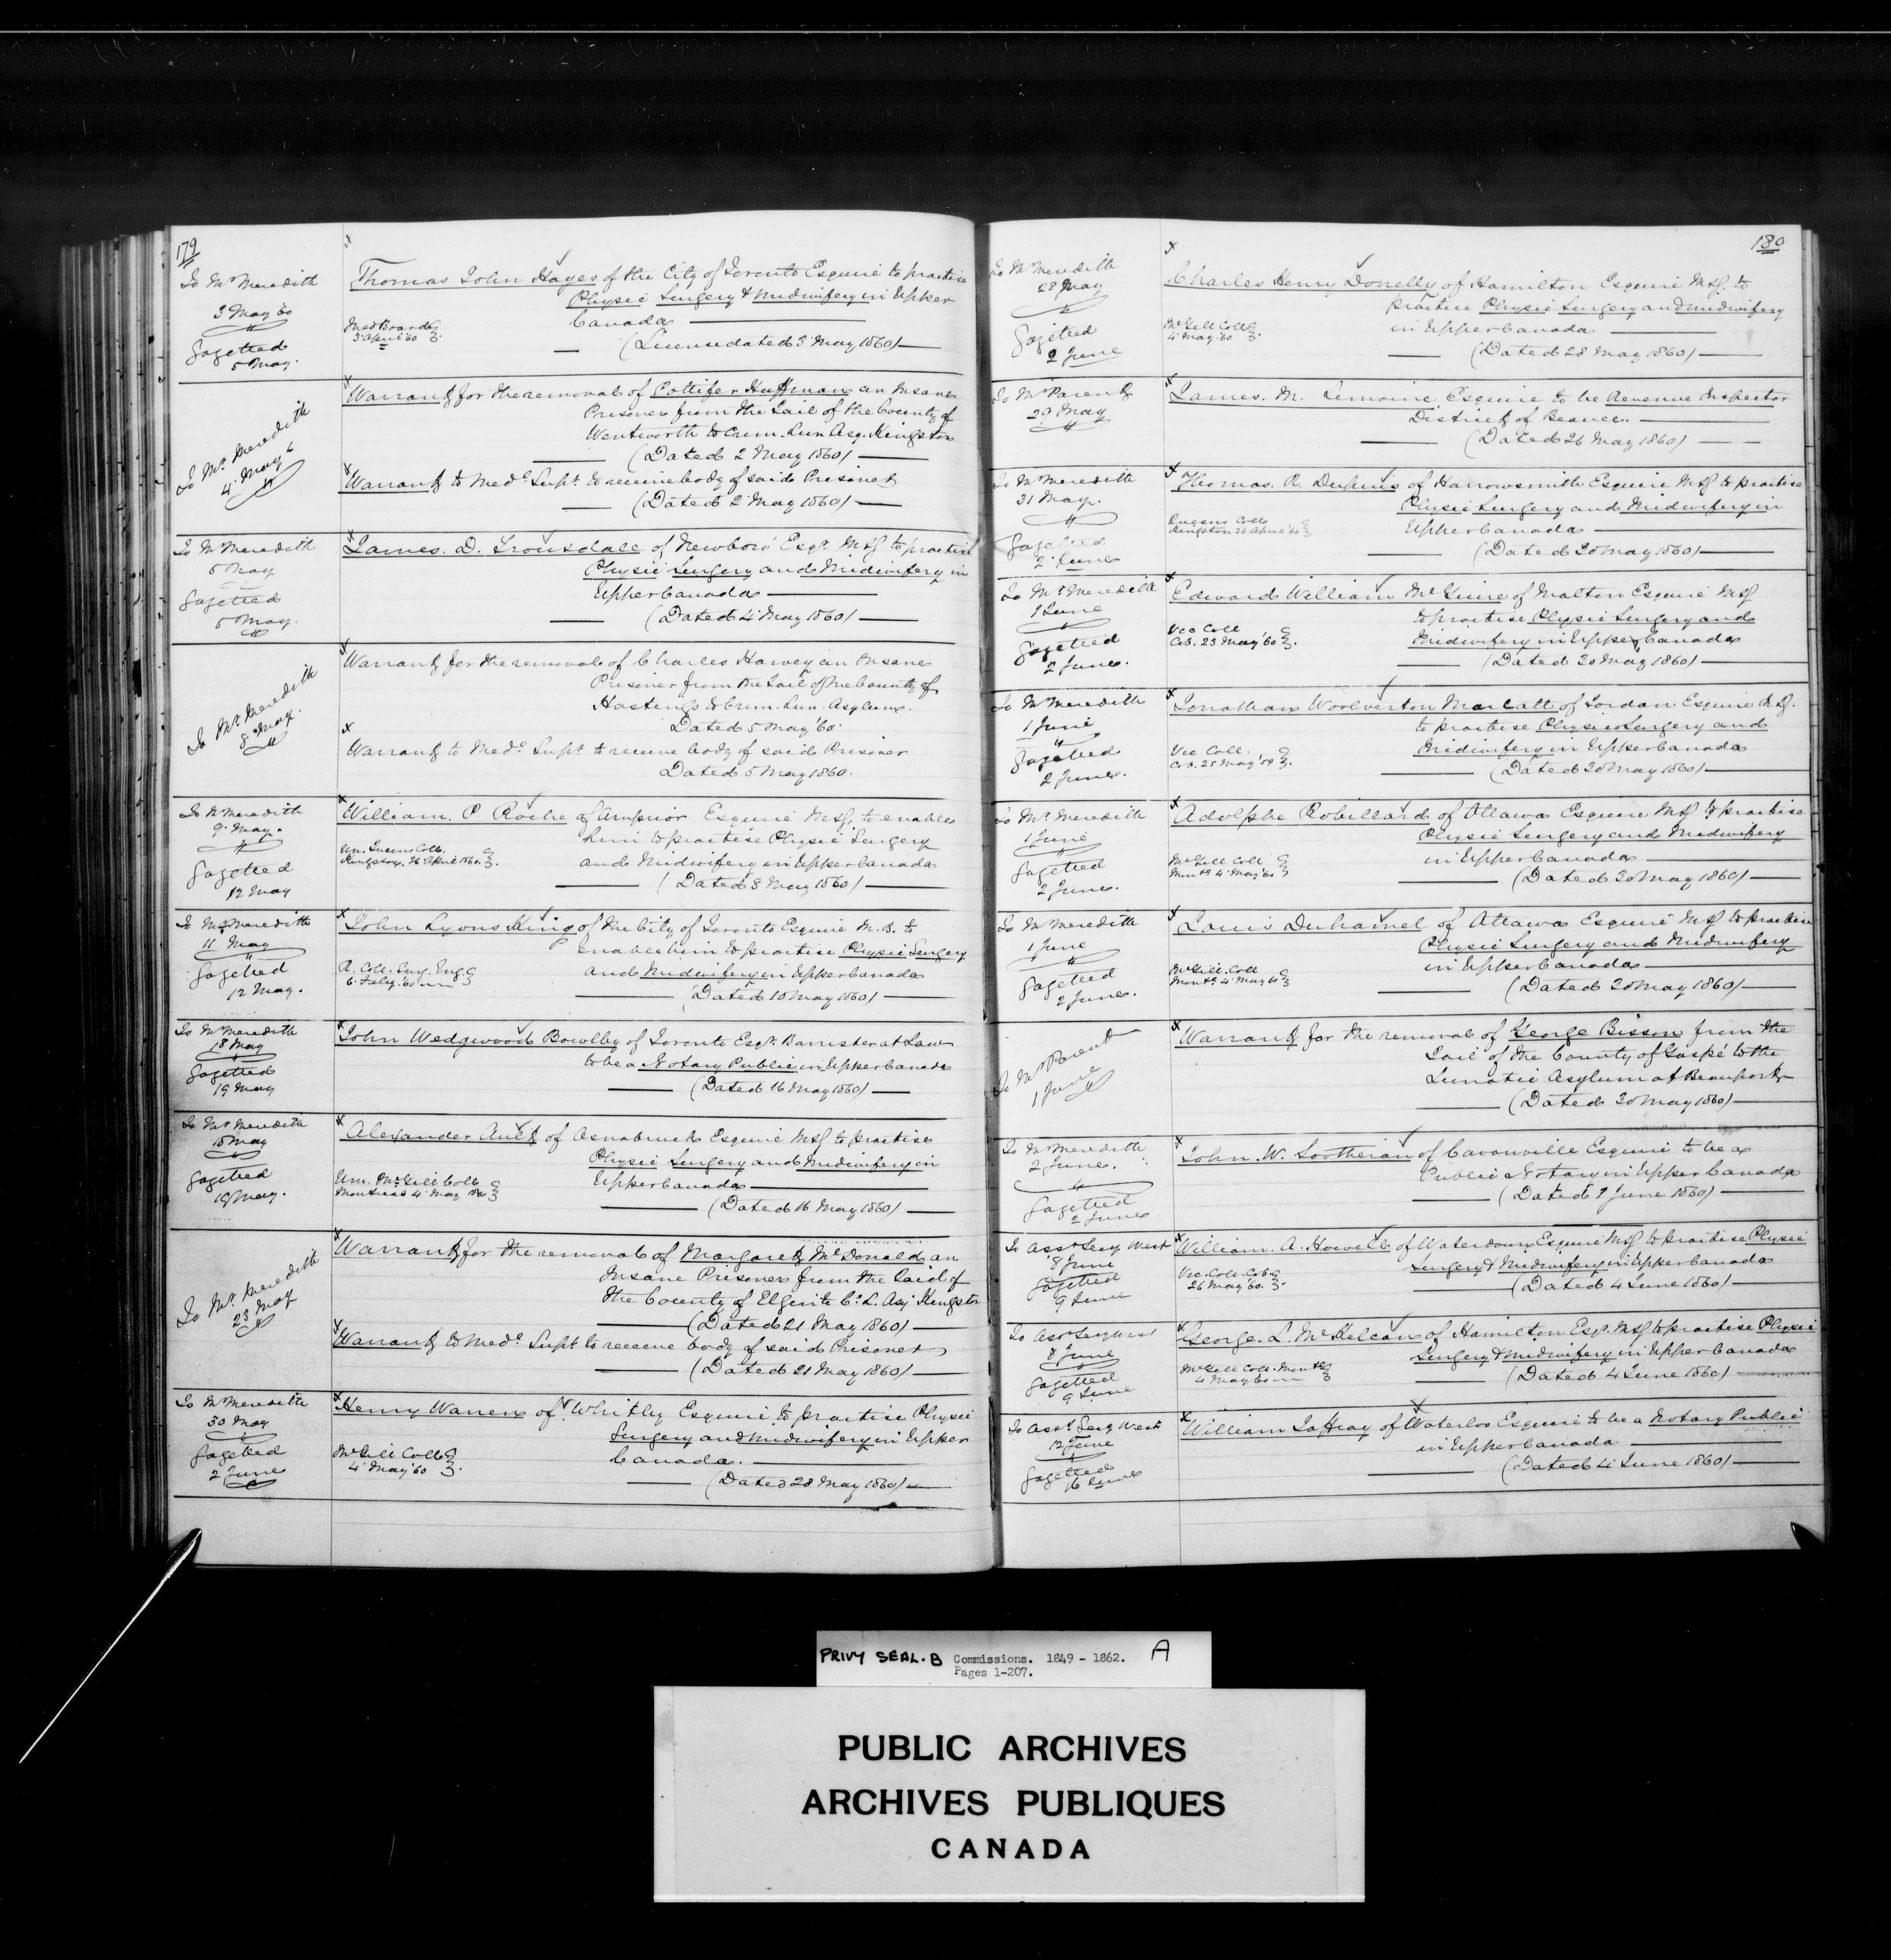 179
To Mr Meredith
3 May 60
Gazetted
5 May.
Thomas John Hayes of the City of Toronto Esquire to practise
Physic Surgery & Midwifery in Upper
Canada
Med Board
3 April 60
(License dated 3 May 1860)
To Mr Meredith
4 May
Warrant for the removal of Huffman an Insane
Prisoner from the Gaol of the County of
Wentworth to Crim. Lun. Asy. Kingston
(Dated 2 May 1860)
Warrant to Medl Supt to receive body of said Prisoner
(Dated 2 May 1860)
To Mr Meredith
5 May
Gazetted
5 May.
James. D. of Newboro' Esqr. M.D. to practise
Physic Surgery and Midwifery in
Upper Canada
(Dated 4 May 1860)
To Mr. Meredith
8 May.
Warrant for the removal of Charles Harvey an Insane
Prisoner from the Gaol of the County of
Hastings to Crim. Lun. Asylum.
Dated 5 May 60
Warrant to Medl Supt to receive body of said Prisoner
Dated 5 May 1860.
To Mr Meredith
9. May.
Gazetted
12 May
William. P. Roche of Arnprior Esquire M.D. to enable
him to practise Physic Surgery
Un. Queens Coll.
Kingston. 26 April 1860.
and Midwifery in Upper Canada
(Dated 8 May 1860)
To Mr Meredith
11 May
Gazetted
12 May.
John Lyons King of the City of Toronto Esquire M.B. to
enable him to practise Physic Surgery
R. Coll. Surg. Eng.
6. Feby. 60
and Midwifery in Upper Canada
(Dated 10 May 1860)
To Mr Meredith
18 May
Gazetted
19 May
John Wedgwood Bowlby of Toronto Esqr. Barrister at Law
to be a Notary Public in Upper Canada
(Dated 16 May 1860)
To Mr Meredith
18 May
Gazetted
19 May.
Alexander Ault of Osnabruck Esquire M.D. to practise
Physic Surgery and Midwifery in
Un. McGill Coll
Montreal 4 May 1860
Upper Canada
(Dated 16 May 1860)
To Mr. Meredith
23 May
Warrant for the removal of Margaret McDonald an
Insane Prisoner from the Gaol of
the County of Elgin to C. L. Asy Kingston
(Dated 21 May 1860)
Warrant to Medl Supt to receive body of said Prisoner
(Dated 21 May 1860)
To Mr Meredith
30 May
Gazetted
2 June
Henry Warren of Whitby Esquire to practise Physic
Surgery and Midwifery in Upper
McGill Coll
4 May 60
Canada.
(Dated 28 May 1860)
180
To Mr Meredith
28 May
Gazetted
2 June
Charles Henry Donelly of Hamilton Esquire M.D. to
practise Physic Surgery and Midwifery
McGill Coll
4 May 60
in Upper Canada
(Dated 28 May 1860)
To Mr Parent
29 May
James. M. Lemoine Esquire to be Revenue Inspector
District of Beauce.
(Dated 26 May 1860)
To Mr Meredith
31 May.
Gazetted
2 June
Thomas. R. of Harrowsmith Esquire M.D. to practise
Physic Surgery and Midwifery in
Queens Coll
Kingston 26 April 60
Upper Canada
(Dated 30 May 1860)
To Mr. Meredith
1 June
Gazetted
2 June.
Edward William McGuire of Malton Esquire M.D.
to practise Physic Surgery and
Vic Coll
Cob. 23 May 60
Midwifery in Upper Canada
(Dated 30 May 1860)
To Mr Meredith
1 June
Gazetted
2 June.
Jonathan Woolverton of Jordan Esquire M.D.
to practise Physic Surgery and
Vic Coll.
Cob. 25 May 59
Midwifery in Upper Canada
(Dated 30 May 1860)
To Mr. Meredith
1 June
Gazetted
2 June.
Adolphe Robillard of Ottawa Esquire M.D. to practise
Physic Surgery and Midwifery
McGill Coll
Montl. 4 May 60
in Upper Canada
(Dated 30 May 1860)
To Mr Meredith
1 June
Gazetted
2 June.
Louis Duhamel of Ottawa Esquire M.D. to practise
Physic Surgery and Midwifery
McGill. Coll
Montl. 4 May 60
in Upper Canada
(Dated 30 May 1860)
To Mr Parent
1 June
Warrant for the removal of George Bisson from the
Gaol of the County of Gaspé to the
Lunatic Asylum at Beauport
(Dated 30 May 1860)
To Mr Meredith
2 June.
Gazetted
2 June
John. W. Sootheran of Cavanville Esquire to be a
Public Notary in Upper Canada
(Dated 1 June 1860)
To Asst Secy West
8 June
Gazetted
9 June
William. A. Howell of Waterdown Esquire M.D. to practise Physic
Surgery & Midwifery in Upper Canada
Vic. Coll. Cob.
26 May 60.
(Dated 4 June 1860)
To Asst Secy West
8 June
Gazetted
9 June
George. L. McKelcan of Hamilton Esqr. M.D. to practise Physic
Surgery & Midwifery in Upper Canada
McGill Coll. Montl
4 May 60
(Dated 4 June 1860)
To Asst. Secy West
12 June
Gazetted
16 June
William Jaffray of Waterloo Esquire to be a Notary Public
in Upper Canada
(Dated 4 June 1860)
PRIVY SEAL. B Commissions. 1849 - 1862. A
Pages 1-207.
PUBLIC ARCHIVES
ARCHIVES PUBLIQUES
CANADA